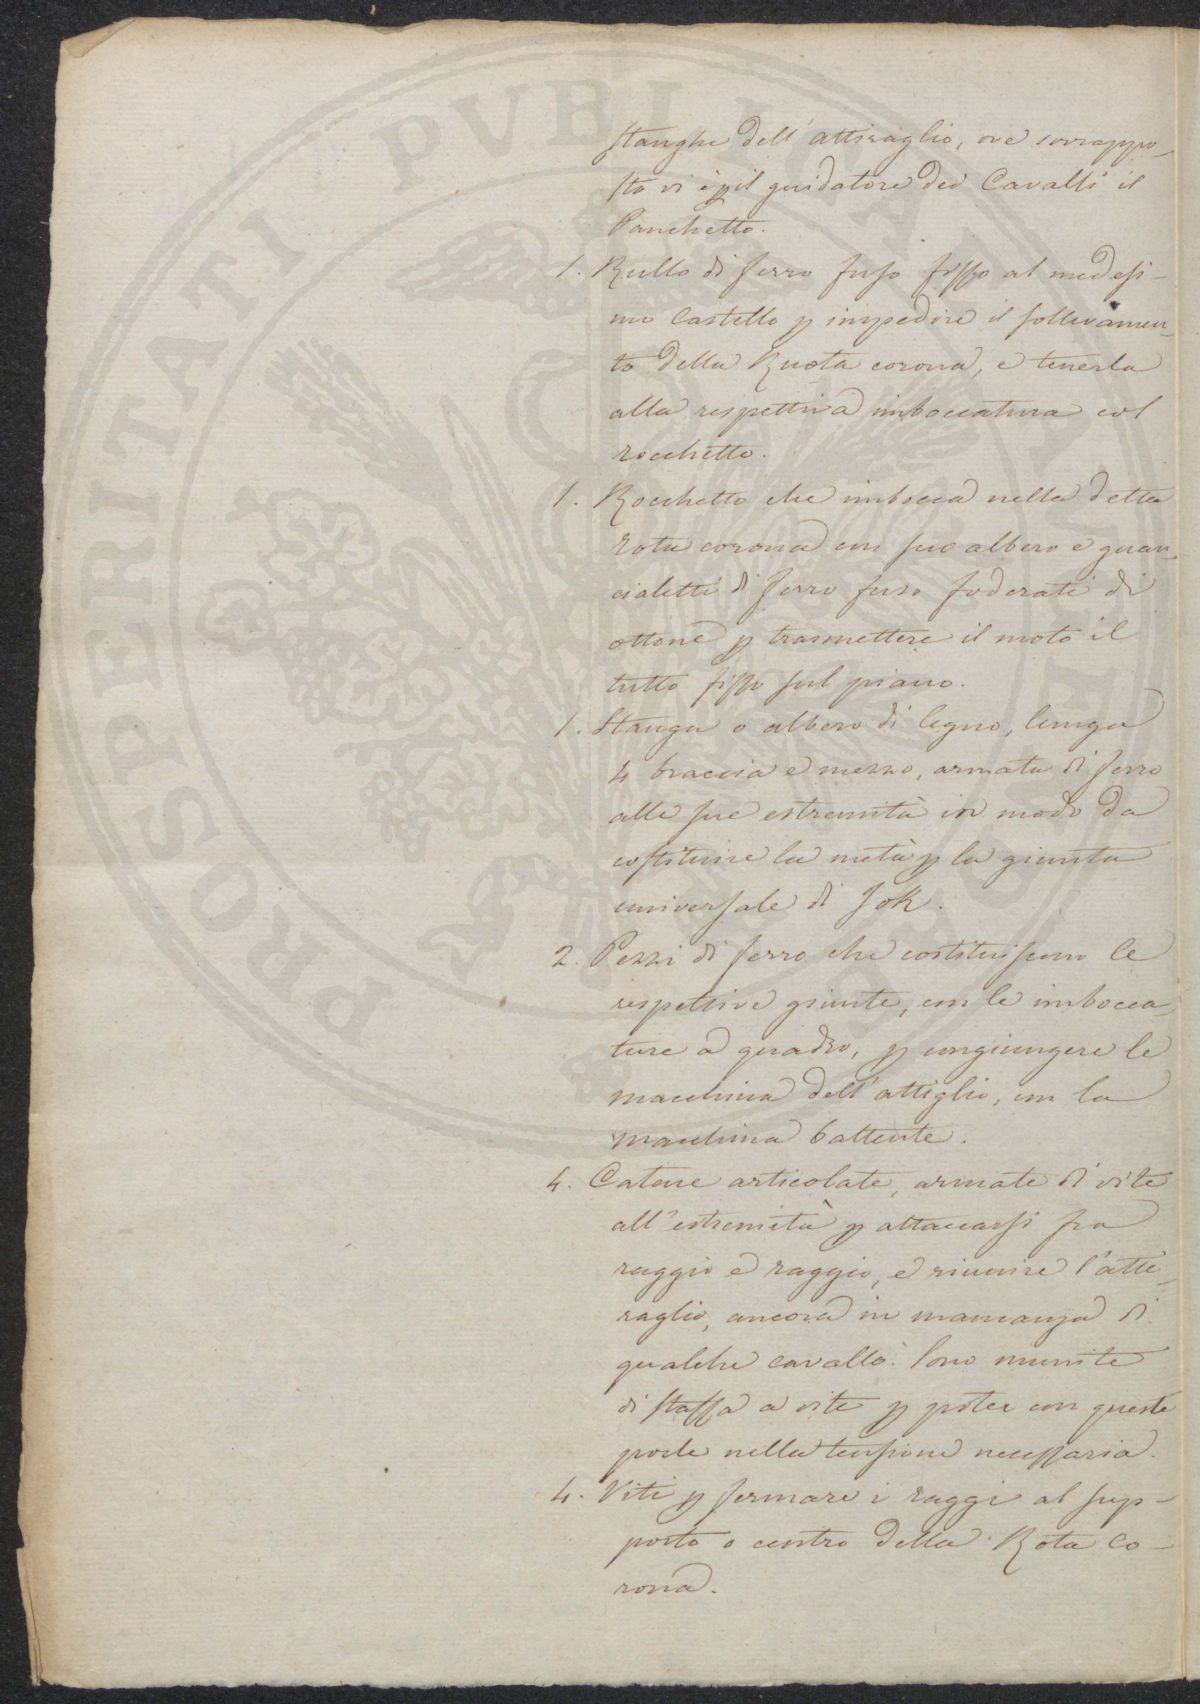 stanghe dell'attiraglio, ove sovrappo-
sto vi è p il guidatore dei Cavalli il
Panchetto.
1. Rullo di ferro fuso fisso al medesi-
mo Castello p impedire il sollevamen-
to della Ruota corona, e tenerla
alla respettiva imboccatura col
rocchetto.
1. Rocchetto che imbocca nella detta
rota corona con suo albero e guan-
cialetti di ferro fuso foderati di
ottone p trasmettere il moto il
tutto fisso sul piano.
1. Stanga o albero di legno, lunga
4 braccia e mezzo, armata di ferro
alle sue estremità in modo da
costituire la metà p la giunta
universale di Jok.
2. Pezzi di ferro che costituiscono le
respettive giunte, con le imbocca-
ture a quadro, p congiungere la
macchina dell'attiglio, con la
macchina battente.
4. Catene articolate, armate di vite
all'estremità p attaccarsi fra
raggio e raggio, e riunire l'atti-
raglio, ancora in mancanza di
qualche cavallo. Sono munite
di staffa a vite p poter con queste
porle nella tensione necessaria.
4. Viti p fermare i raggi al sup-
porto o centro della Rota Co-
rona.
PROSPERITATI PUBLICAE